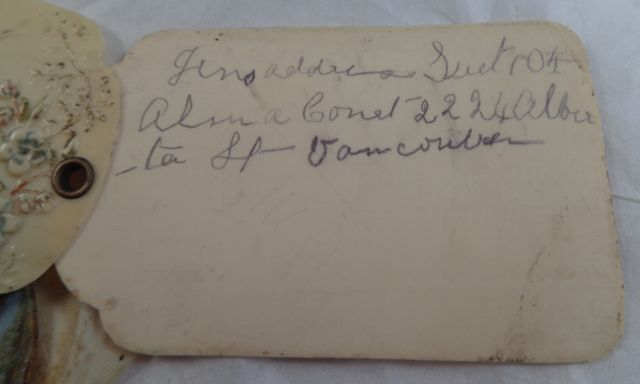 Jens address Suet 104
Alma Coret 2224 Alber
-ta St Vancouver